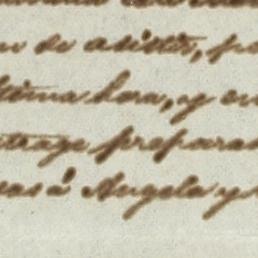 de asistir,
ltima hora, y en
trage prepara
a Angela y